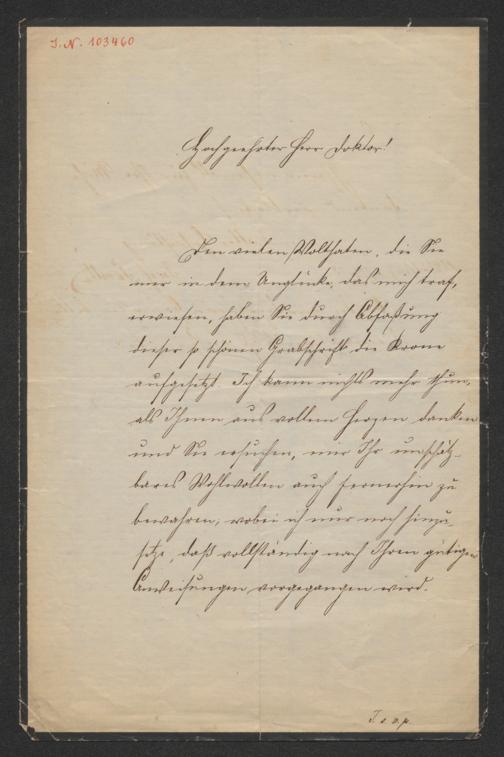 I. N. 103460
Hochgeehrter Herr Doktor!
Den vielen Wolthaten, die Sie
mir in dem Unglücke, das mich traf,
erwiesen, haben Sie durch Abfaßung
dieser so schönen Grabschrift die Krone
aufgesetzt. Ich kann nichts mehr thun,
als Ihnen aus vollem Herzen danken
und Sie ersuchen, mir Ihr unschätz-
bares Wohlwollen auch fernerhin zu
bewahren; wobei ich nur noch hinzu-
setze, daß vollständig nach Ihren gütigen
Anweisungen vorgegangen wird.